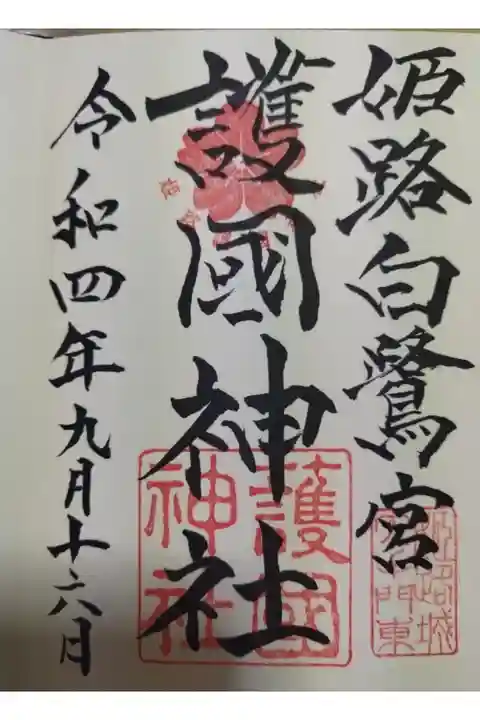 姫路白鷺宮
護國神社
令和四年九月十六日
護國
神社